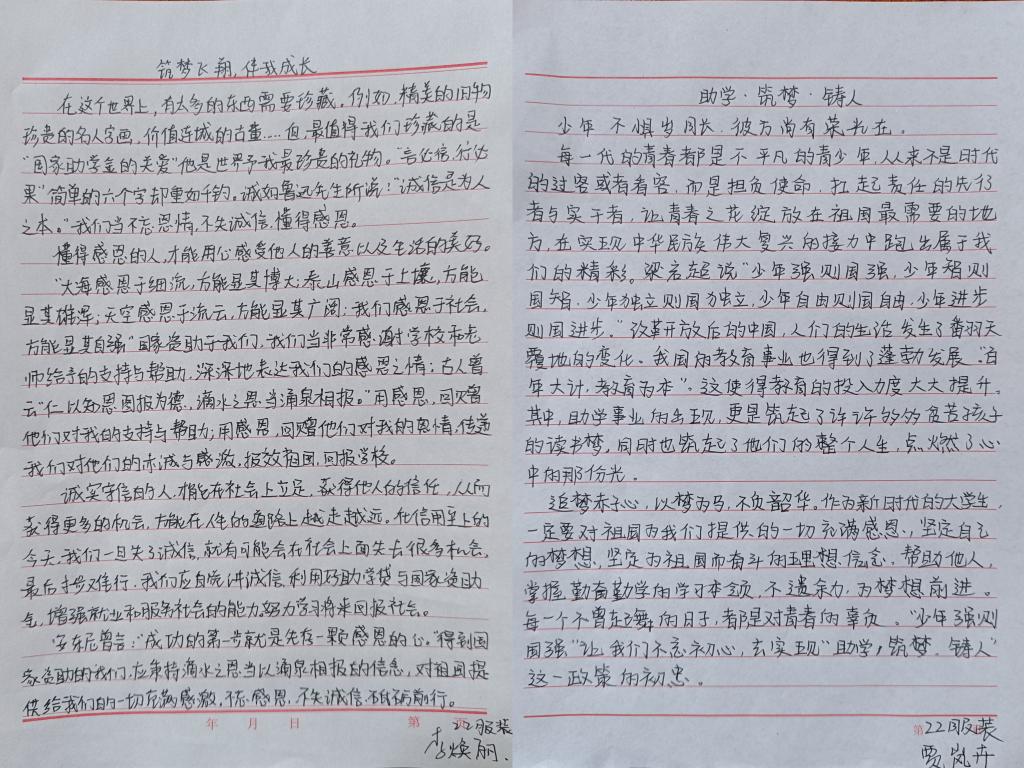 筑梦飞翔,伴我成长
在这个世界上,有太多的东西需要珍藏。例如,精美的旧物
珍贵的名人字画,价值连城的古董……但,最值得我们珍藏的是
"国家助学金的关爱"他是世界予我最珍贵的礼物。"言必信,行必
果"简单的六个字却重如千钧。诚如鲁迅先生所说:"诚信是为人
之本。"我们当不忘恩情,不失诚信,懂得感恩。
懂得感恩的人,才能用心感受他人的善意以及生活的美好。
"大海感恩于细流,方能显其博大;泰山感恩于土壤,方能
显其雄浑;天空感恩于流云,方能显其广阔;我们感恩于社会,
方能显其自强"国家资助于我们,我们当非常感谢对学校和老
师给予的支持与帮助,深深地表达我们的感恩之情;古人曾
云"仁以知恩图报为德,滴水之恩当涌泉相报。"用感恩,回赠
他们对我的支持与帮助;用感恩,回赠他们对我的恩情,传递
我们对他们的赤诚与感激,报效祖国,回报学校。
诚实守信的人,才能在社会上立足,获得他人的信任,从而
获得更多的机会,方能在人生的道路上越走越远。在信用至上的
今天,我们一旦失了诚信,就有可能会在社会上面失去很多机会,
最后寸步难行。我们应自觉讲诚信,利用好助学贷与国家资助
金,增强就业和服务社会的能力,努力学习将来回报社会。
安东尼曾言:"成功的第一步就是先存一颗感恩的心。"得到国
家资助的我们,应秉持滴水之恩当以涌泉相报的信念,对祖国提
供给我们的一切充满感激,不忘感恩,不失诚信,砥砺前行。
年 月 日 第 页
22服装
李焕丽.
助学·筑梦·铸人
少年不惧岁月长,彼方尚有荣光在。
每一代的青春都是不平凡的青少年,从来不是时代
的过客或者看客,而是担负使命,扛起责任的先行
者与实干者,让青春之花绽放在祖国最需要的地
方,在实现中华民族伟大复兴的接力中跑出属于我
们的精彩。梁启超说"少年强则国强,少年智则
国智,少年独立则国独立,少年自由则国自由,少年进步
则国进步。"改革开放后的中国,人们的生活发生了翻天
覆地的变化。我国的教育事业也得到了蓬勃发展。"百
年大计,教育为本"。这使得教育的投入力度大大提升。
其中,助学事业的出现,更是筑起了许许多多贫苦孩子
的读书梦,同时也筑起了他们的整个人生,点燃了心
中的那份光。
追梦赤子心,以梦为马,不负韶华。作为新时代的大学生
一定要对祖国为我们提供的一切充满感恩,坚定自己
的梦想、坚定为祖国而奋斗的理想信念,帮助他人,
掌握勤奋勤学的学习本领,不遗余力,为梦想前进。
每一个不曾起舞的日子,都是对青春的辜负。"少年强则
国强"让我们不忘初心,去实现"助学,筑梦,铸人"
这一政策的初衷。
第
22服装
贾岚卉